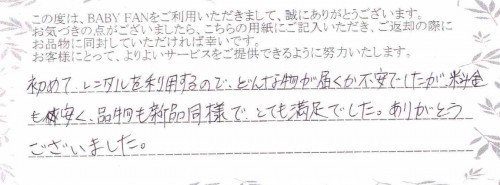 この度は、BABY FANをご利用いただきまして、誠にありがとうございます。
お気づきの点がございましたら、こちらの用紙にご記入いただき、ご返却の際に
お品物に同封していただければ幸いです。
お客様にとって、よりよいサービスをご提供できるように努力いたします。
初めて レンタルを利用するので、どんな物が届くか不安でしたが、料金
も格安く、品物も新品同様で、とても満足でした。ありがとう
ございました。